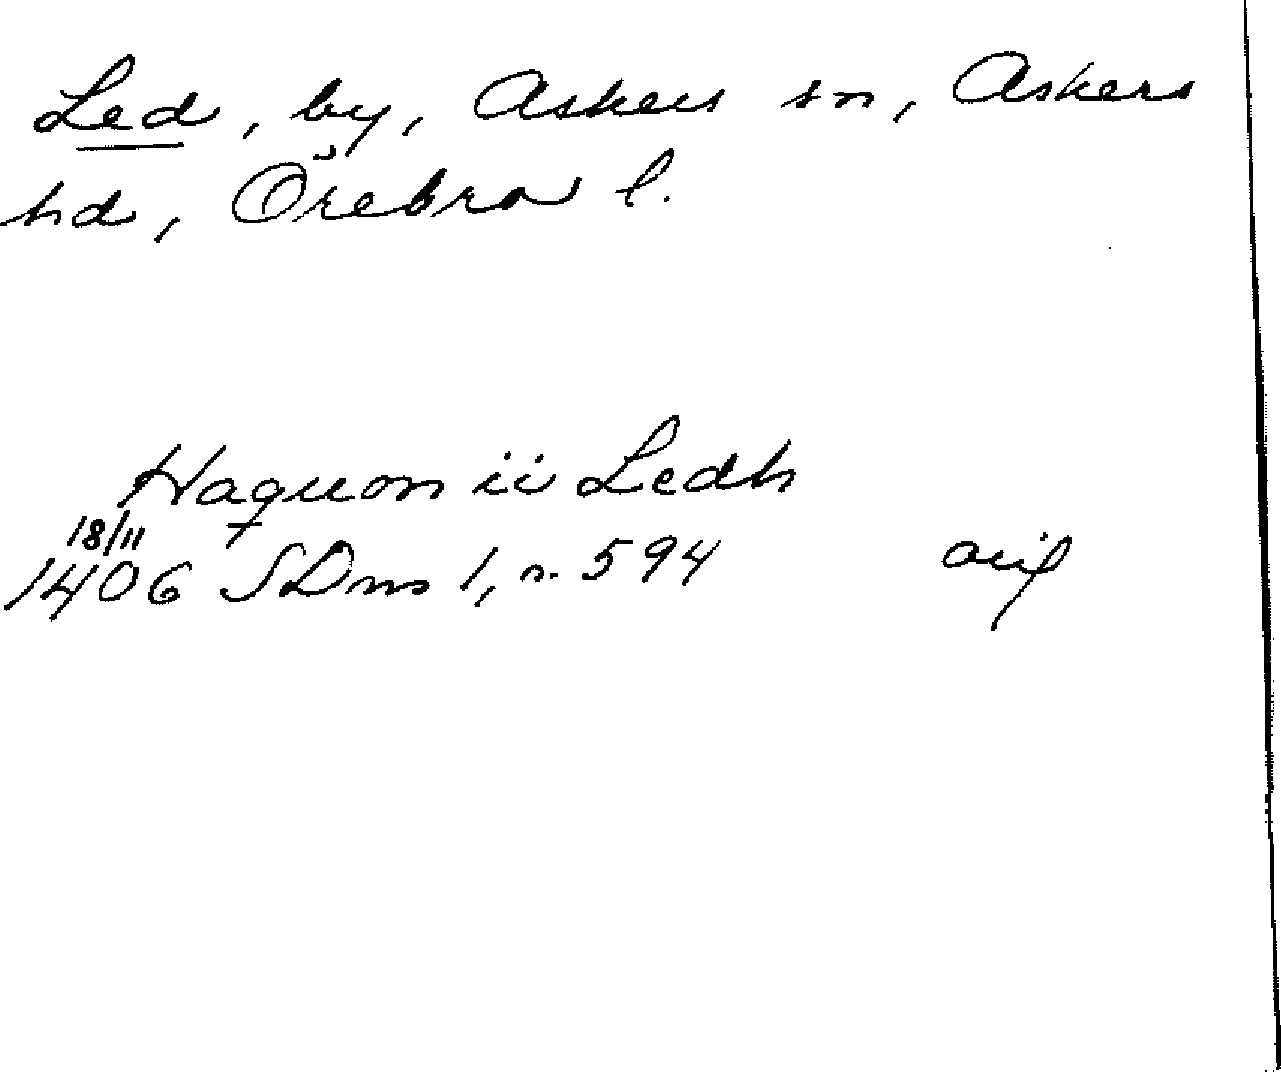 Led, by, Askers sn, Askers
hd, Örebro l.
Haquon ii Ledh
18/11
1406 SDns 1, n. 594